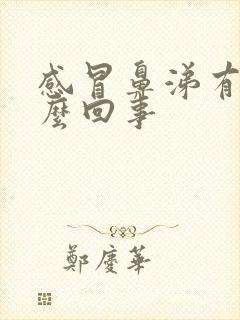 感冒鼻涕有
麼回事
鄭慶華